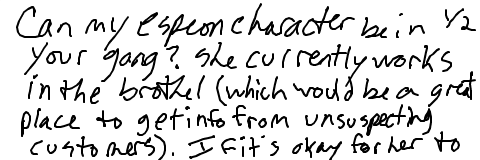 Can my espeon character be in 1/2
your gang? She currently works
in the brothel (which would be a great
place to get info from unsuspecting
customers). If it's okay for her to